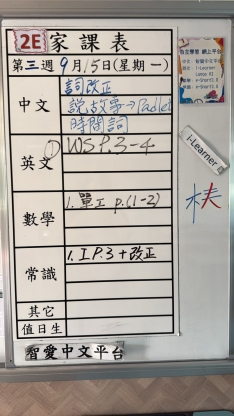 2E 家課表
第三週 9月15日(星期一)
中文
詞改正
說故事→Padlet
時間詞
英文
① WS P.3-4
數學
1. 單工 p.(1-2)
常識
1. I P.3 + 改正
其它
值日生
智愛中文平台
i-Learner